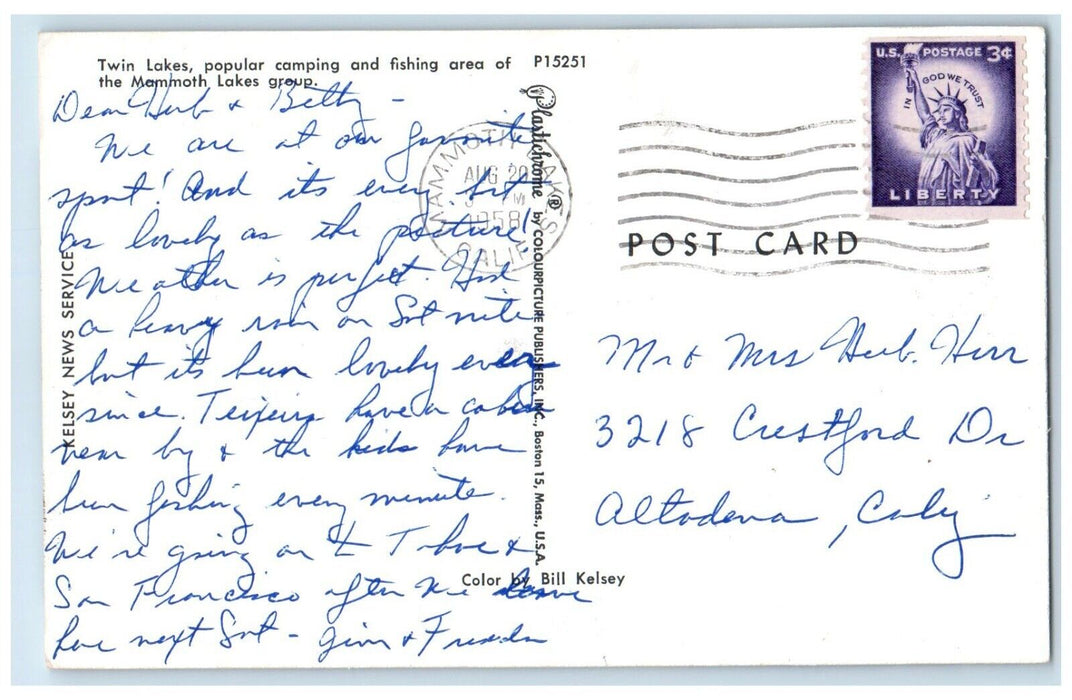 Twin Lakes, popular camping and fishing area of P15251
the Mammoth Lakes group.
Dear Herb & Betty -
We are at our favorite
spot! And its every bit
as lovely as the picture!
Weather is perfect. Had
a heavy rain on Sat nite
but its been lovely ever
since. Teixeira have a cabin
near by & the kids have
been fishing every minute.
We're going on to Tahoe &
San Francisco after we leave
here next Sat - Jim & Freeda
KELSEY NEWS SERVICE
Plastichrome ® by COLOURPICTURE PUBLISHERS, INC., Boston 15, Mass., U.S.A.
Color by Bill Kelsey
MAMMOTH LAKES
AUG 20
PM
1958
CALIF
U.S. POSTAGE 3¢
IN GOD WE TRUST
LIBERTY
POST CARD
Mr & Mrs Herb. Herr
3218 Crestford Dr
Altadena, Calif